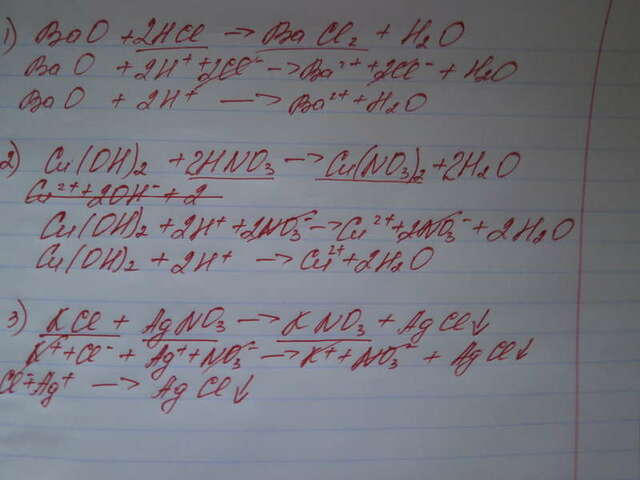 1) BaO + 2HCl → BaCl₂ + H₂O
BaO + 2H⁺ + 2Cl⁻ → Ba²⁺ + 2Cl⁻ + H₂O
BaO + 2H⁺ → Ba²⁺ + H₂O
2) Cu(OH)₂ + 2HNO₃ → Cu(NO₃)₂ + 2H₂O
Cu²⁺ + 2OH⁻ + 2
Cu(OH)₂ + 2H⁺ + 2NO₃⁻ → Cu²⁺ + 2NO₃⁻ + 2H₂O
Cu(OH)₂ + 2H⁺ → Cu²⁺ + 2H₂O
3) KCl + AgNO₃ → KNO₃ + AgCl↓
K⁺ + Cl⁻ + Ag⁺ + NO₃⁻ → K⁺ + NO₃⁻ + AgCl↓
Cl⁻ + Ag⁺ → AgCl↓